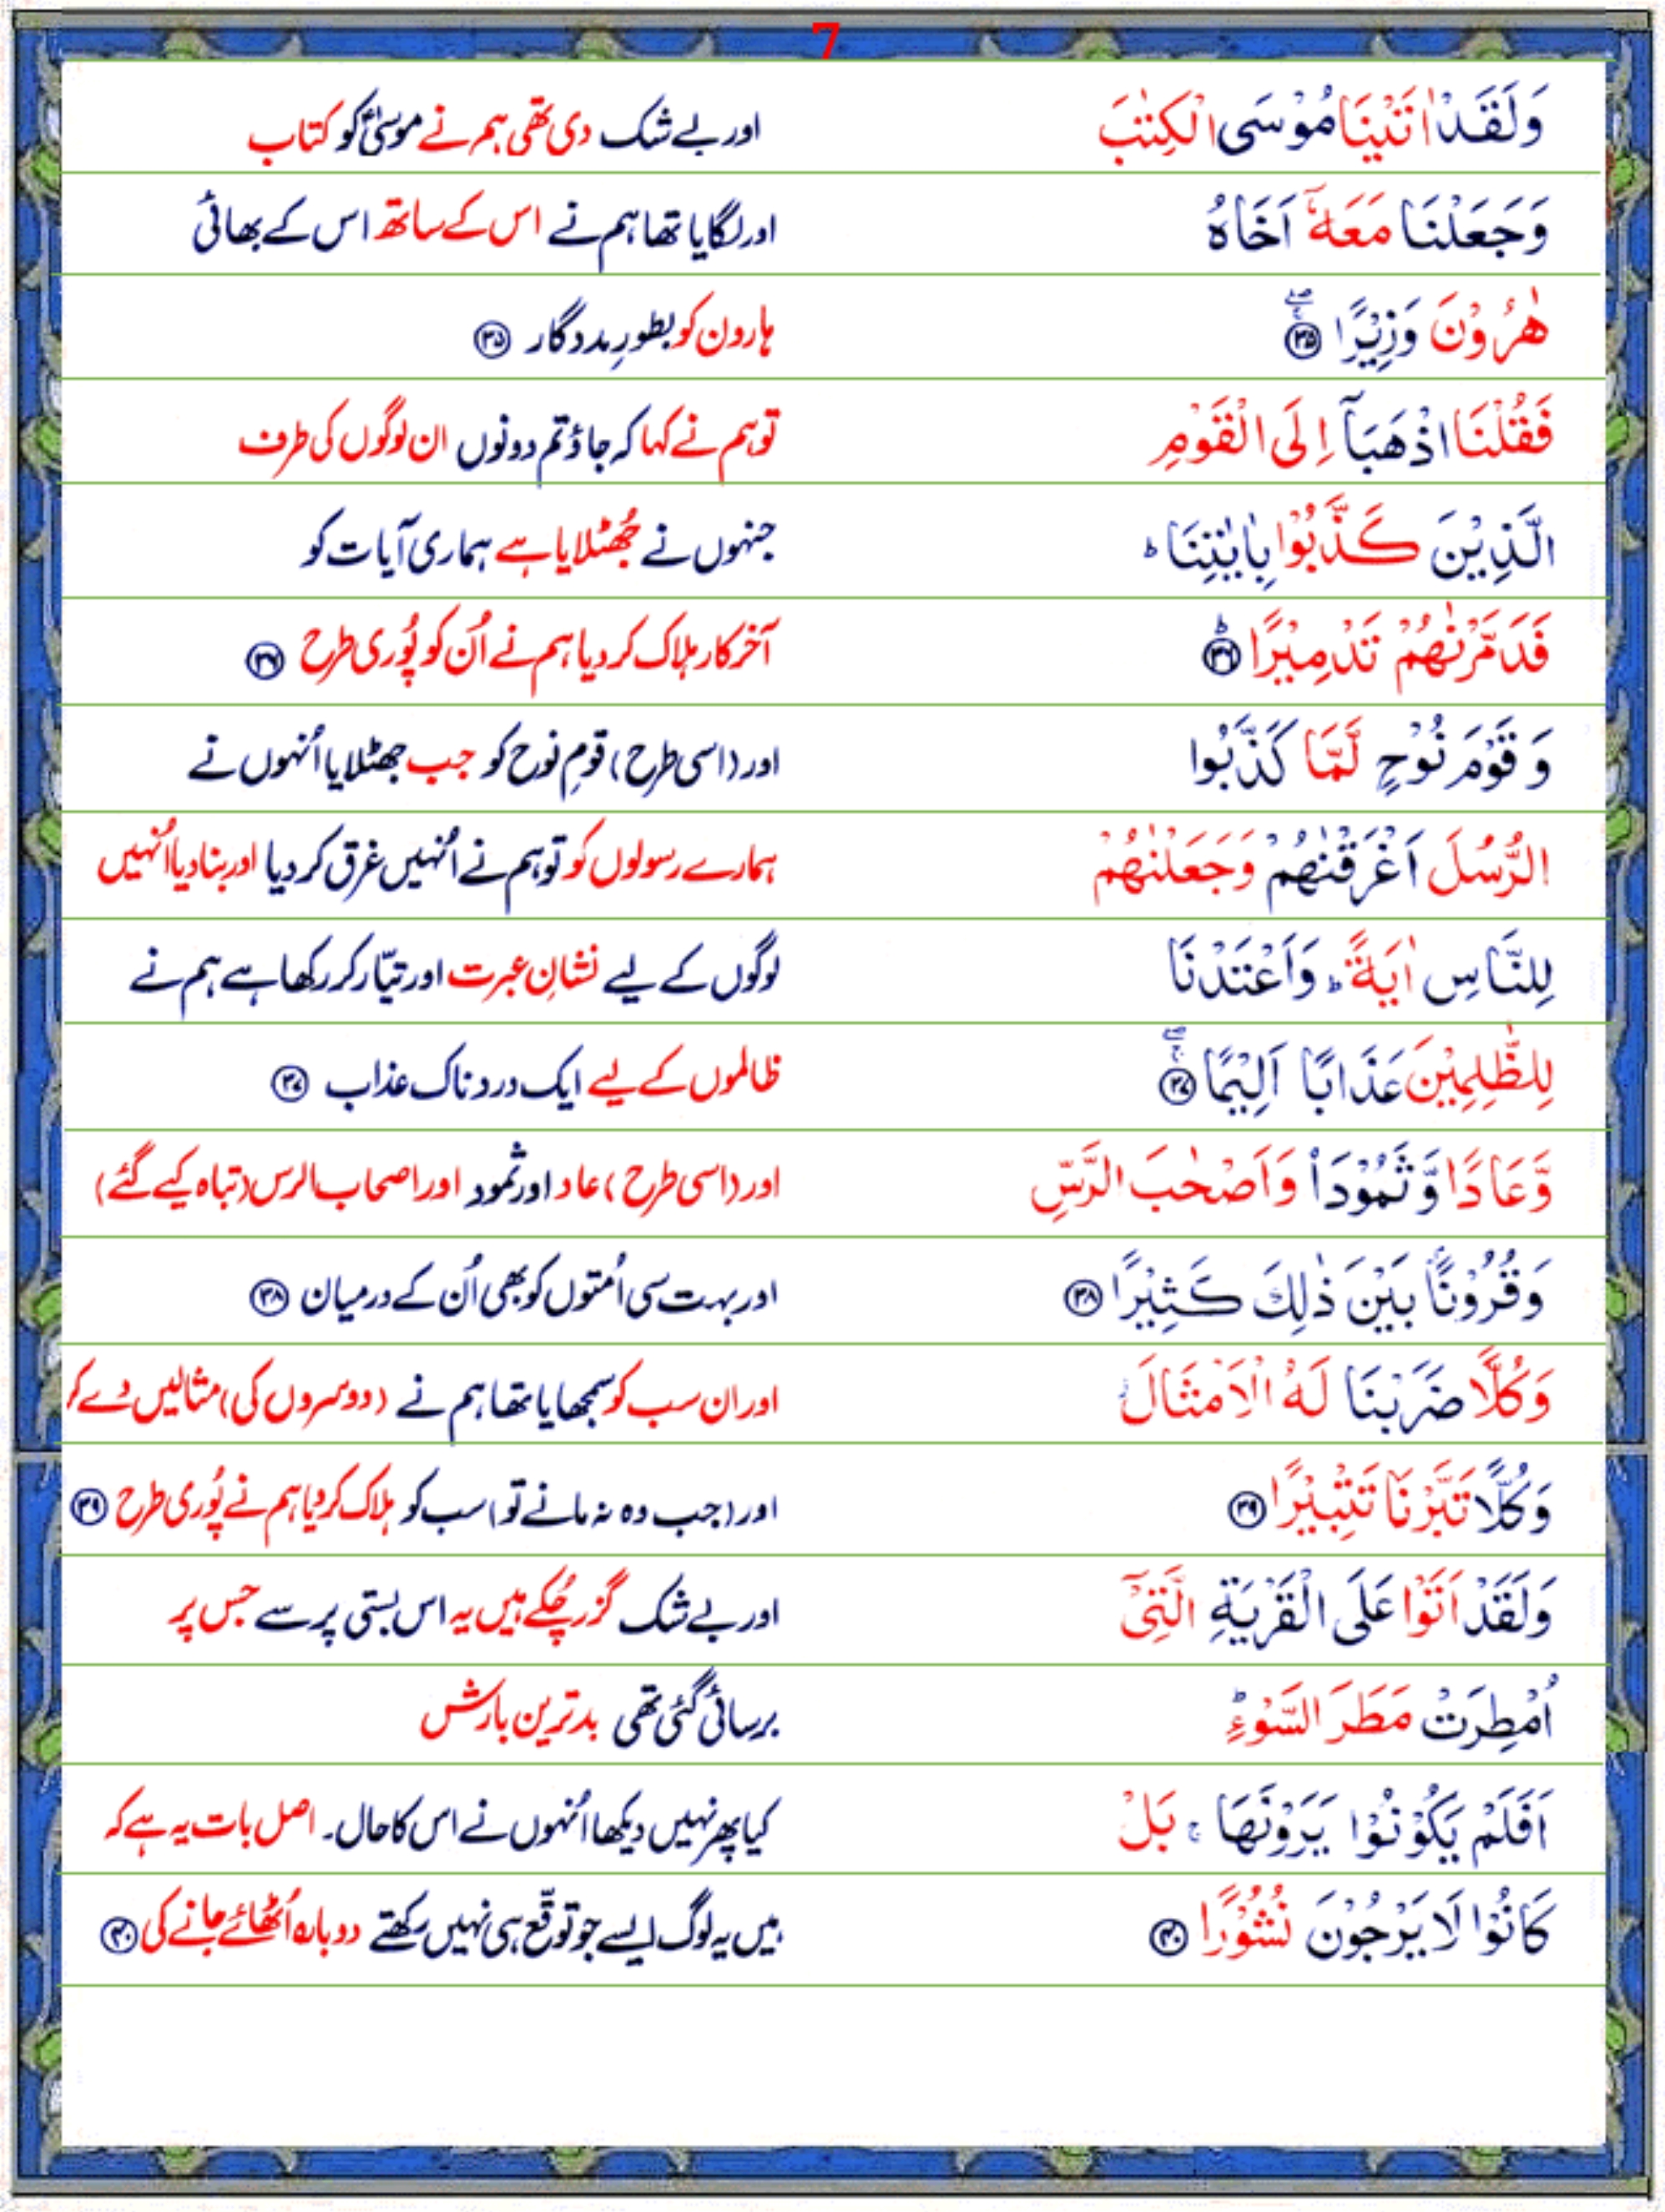 7
وَلَقَدْ اٰتَيْنَا مُوْسَى الْكِتٰبَ اور بے شک دی تھی ہم نے موسیٰؑ کو کتاب
وَجَعَلْنَا مَعَهٗۤ اَخَاهُ اور لگایا تھا ہم نے اس کے ساتھ اس کے بھائی
هٰرُوْنَ وَزِيْرًا ۚۖ‏ ﴿۳۵﴾ ہارون کو بطورِ مددگار ﴿۳۵﴾
فَقُلْنَا اذْهَبَاۤ اِلَى الْقَوْمِ تو ہم نے کہا کہ جاؤ تم دونوں ان لوگوں کی طرف
الَّذِيْنَ كَذَّبُوْا بِاٰيٰتِنَا ؕ جنہوں نے جُھٹلایا ہے ہماری آیات کو
فَدَمَّرْنٰهُمْ تَدْمِيْرًا ؕ ﴿۳۶﴾ آخرکار ہلاک کر دیا ہم نے اُن کو پُوری طرح ﴿۳۶﴾
وَ قَوْمَ نُوْحٍ لَّمَّا كَذَّبُوا اور (اسی طرح) قومِ نوح کو جب جھٹلایا اُنہوں نے
الرُّسُلَ اَغْرَقْنٰهُمْ وَجَعَلْنٰهُمْ ہمارے رسولوں کو تو ہم نے اُنہیں غرق کر دیا اور بنا دیا اُنہیں
لِلنَّاسِ اٰيَةً ؕ وَاَعْتَدْنَا لوگوں کے لیے نشانِ عبرت اور تیّار کر رکھا ہے ہم نے
لِلظّٰلِمِيْنَ عَذَابًا اَلِيْمًا ۚۖ ﴿۳۷﴾ ظالموں کے لیے ایک دردناک عذاب ﴿۳۷﴾
وَّعَادًا وَّثَمُوْدَا۟ وَاَصْحٰبَ الرَّسِّ اور (اسی طرح) عاد اور ثمود اور اصحاب الرس (تباہ کیے گئے)
وَقُرُوْنًۢا بَيْنَ ذٰلِكَ كَثِيْرًا ﴿۳۸﴾ اور بہت سی اُمتوں کو بھی اُن کے درمیان ﴿۳۸﴾
وَكُلًّا ضَرَبْنَا لَهُ الْاَمْثَالَ ؗ اور ان سب کو سمجھایا تھا ہم نے (دوسروں کی) مثالیں دے کر
وَكُلًّا تَبَّرْنَا تَتْبِيْرًا ﴿۳۹﴾ اور (جب وہ نہ مانے تو) سب کو ہلاک کر دیا ہم نے پُوری طرح ﴿۳۹﴾
وَلَقَدْ اَتَوْا عَلَى الْقَرْيَةِ الَّتِىْۤ اور بے شک گزر چُکے ہیں یہ اس بستی پر سے جس پر
اُمْطِرَتْ مَطَرَ السَّوْءِ ؕ برسائی گئی تھی بدترین بارش
اَفَلَمْ يَكُوْنُوْا يَرَوْنَهَا ۚ بَلْ کیا پھر نہیں دیکھا اُنہوں نے اس کا حال۔ اصل بات یہ ہے کہ
كَانُوْا لَا يَرْجُوْنَ نُشُوْرًا ﴿۴۰﴾ ہیں یہ لوگ ایسے جو توقّع ہی نہیں رکھتے دوبارہ اُٹھائے جانے کی ﴿۴۰﴾